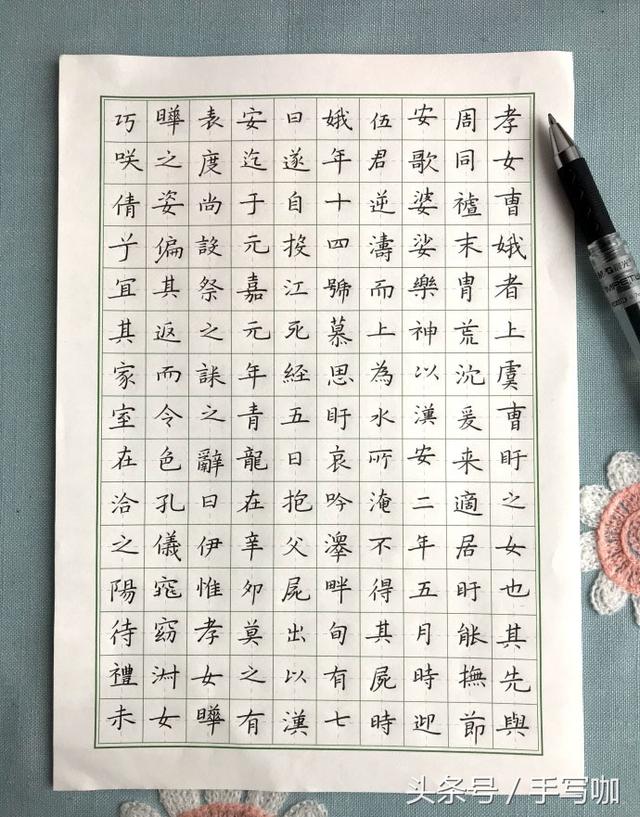 孝女曺娥者上虞曺盱之女也其先與
周同禭末胄荒沈爰来適居盱能撫節
安歌婆娑樂神以漢安二年五月時迎
伍君逆濤而上為水所淹不得其屍時
娥年十四號慕思盱哀吟澤畔旬有七
日遂自投江死経五日抱父屍出以漢
安迄于元嘉元年青龍在辛卯莫之有
表度尚設祭之誄之辭曰伊惟孝女曄
曄之姿偏其返而令色孔儀窈窕淑女
巧咲倩兮宜其家室在洽之陽待禮未
头条号/手写咖